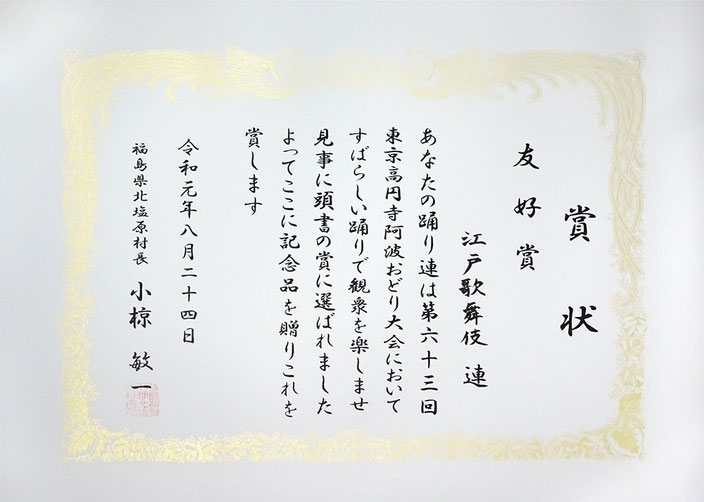 賞状
友好賞
江戸歌舞伎 連
あなたの踊り連は第六十三回
東京高円寺阿波おどり大会において
すばらしい踊りで観衆を楽しませ
見事に頭書の賞に選ばれました
よってここに記念品を贈りこれを
賞します
令和元年八月二十四日
福島県北塩原村長 小椋 敏一